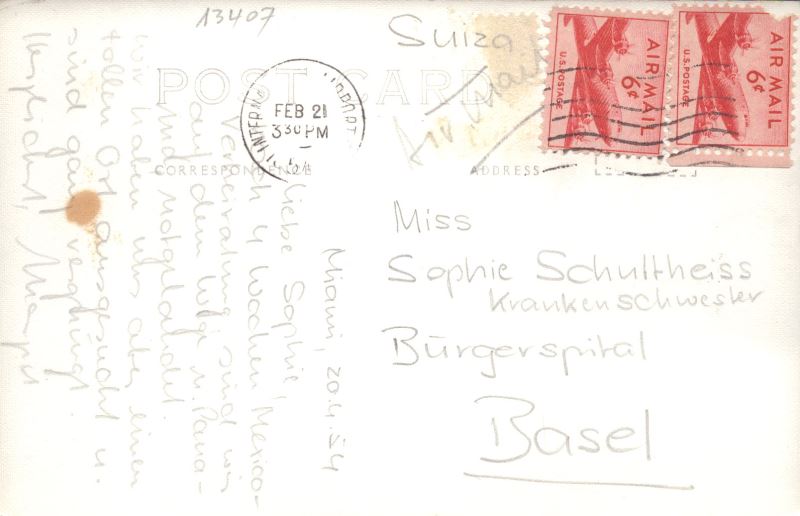 13407
POST CARD
CORRESPONDENCE
ADDRESS
Suiza
Air Mail
U.S. POSTAGE
AIR MAIL
6¢
U.S. POSTAGE
AIR MAIL
6¢
FEB 21
330 PM
Miss
Sophie Schultheiss
Krankenschwester
Bürgerspital
Basel
Miami, 20.4.54
Liebe Sophie,
Nach 4 Wochen Mexico-
sind wir
auf dem Wege n. Pana-
notgelandet.
Wir haben uns aber einen
tollen Ort ausgesucht u.
sind ganz vergnügt.
Herzlichst,